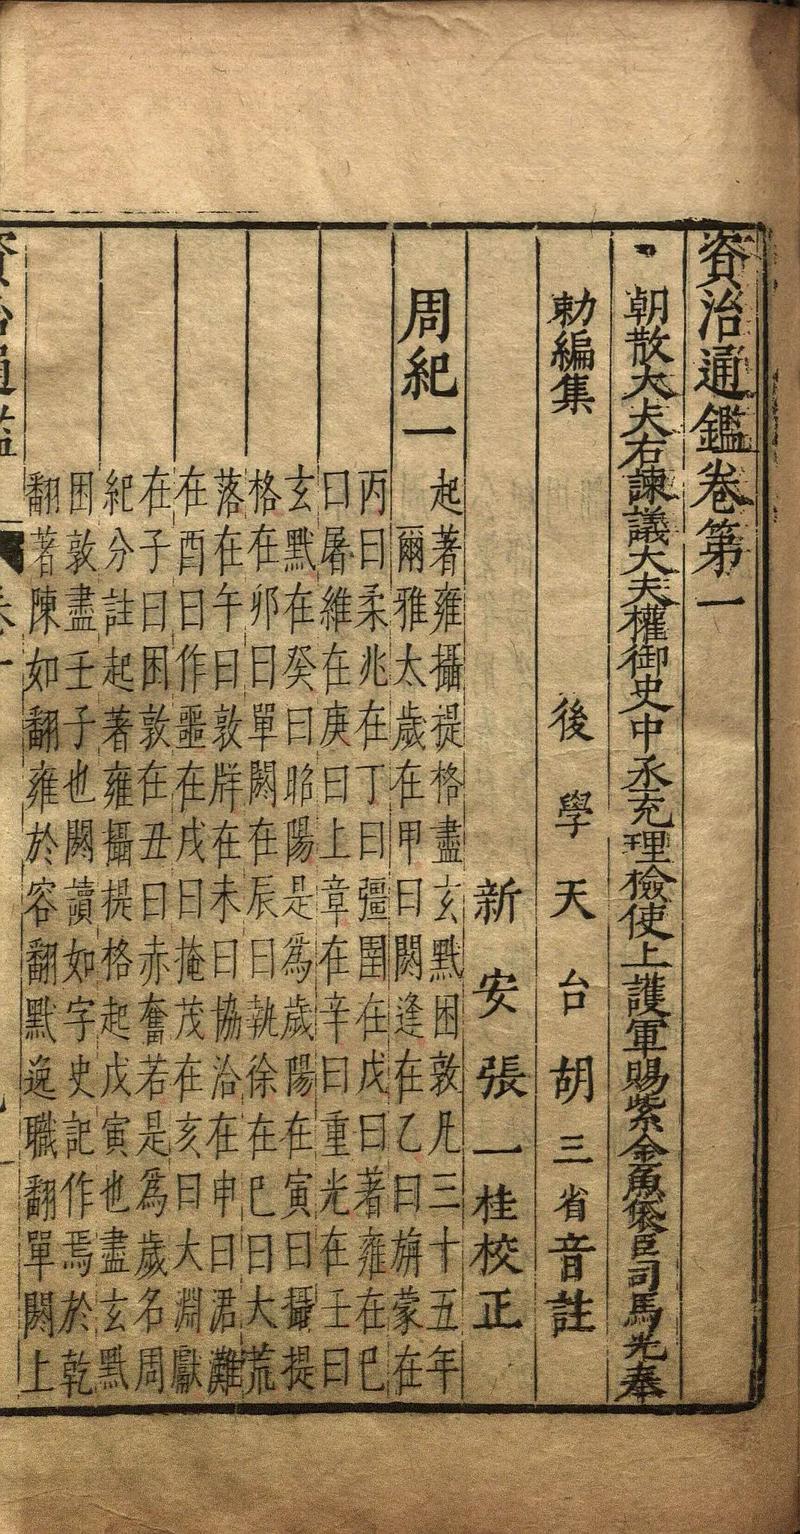 資治通鑑卷第一
朝散大夫右諫議大夫權御史中丞充理檢使上護軍賜紫金魚袋臣司馬光奉
勑編集　後學天台胡三省音註
新安張一桂校正
周紀一　起著雍攝提格盡玄黓困敦凡三十五年
爾雅太歲在甲曰閼逢在乙曰旃蒙在
丙曰柔兆在丁曰彊圉在戊曰著雍在巳
曰屠維在庚曰上章在辛曰重光在壬曰
玄黓在癸曰昭陽是爲歲陽在寅曰攝提
格在卯曰單閼在辰曰執徐在巳曰大荒
落在午曰敦牂在未曰協洽在申曰涒灘
在酉曰作噩在戌曰掩茂在亥曰大淵獻
在子曰困敦在丑曰赤奮若是爲歲名周
紀分註起著雍攝提格起戊寅也盡玄黓
困敦盡壬子也閼讀如字史記作焉於乾
翻著陳如翻雍於容翻黓逸職翻單閼上
資治通鑑